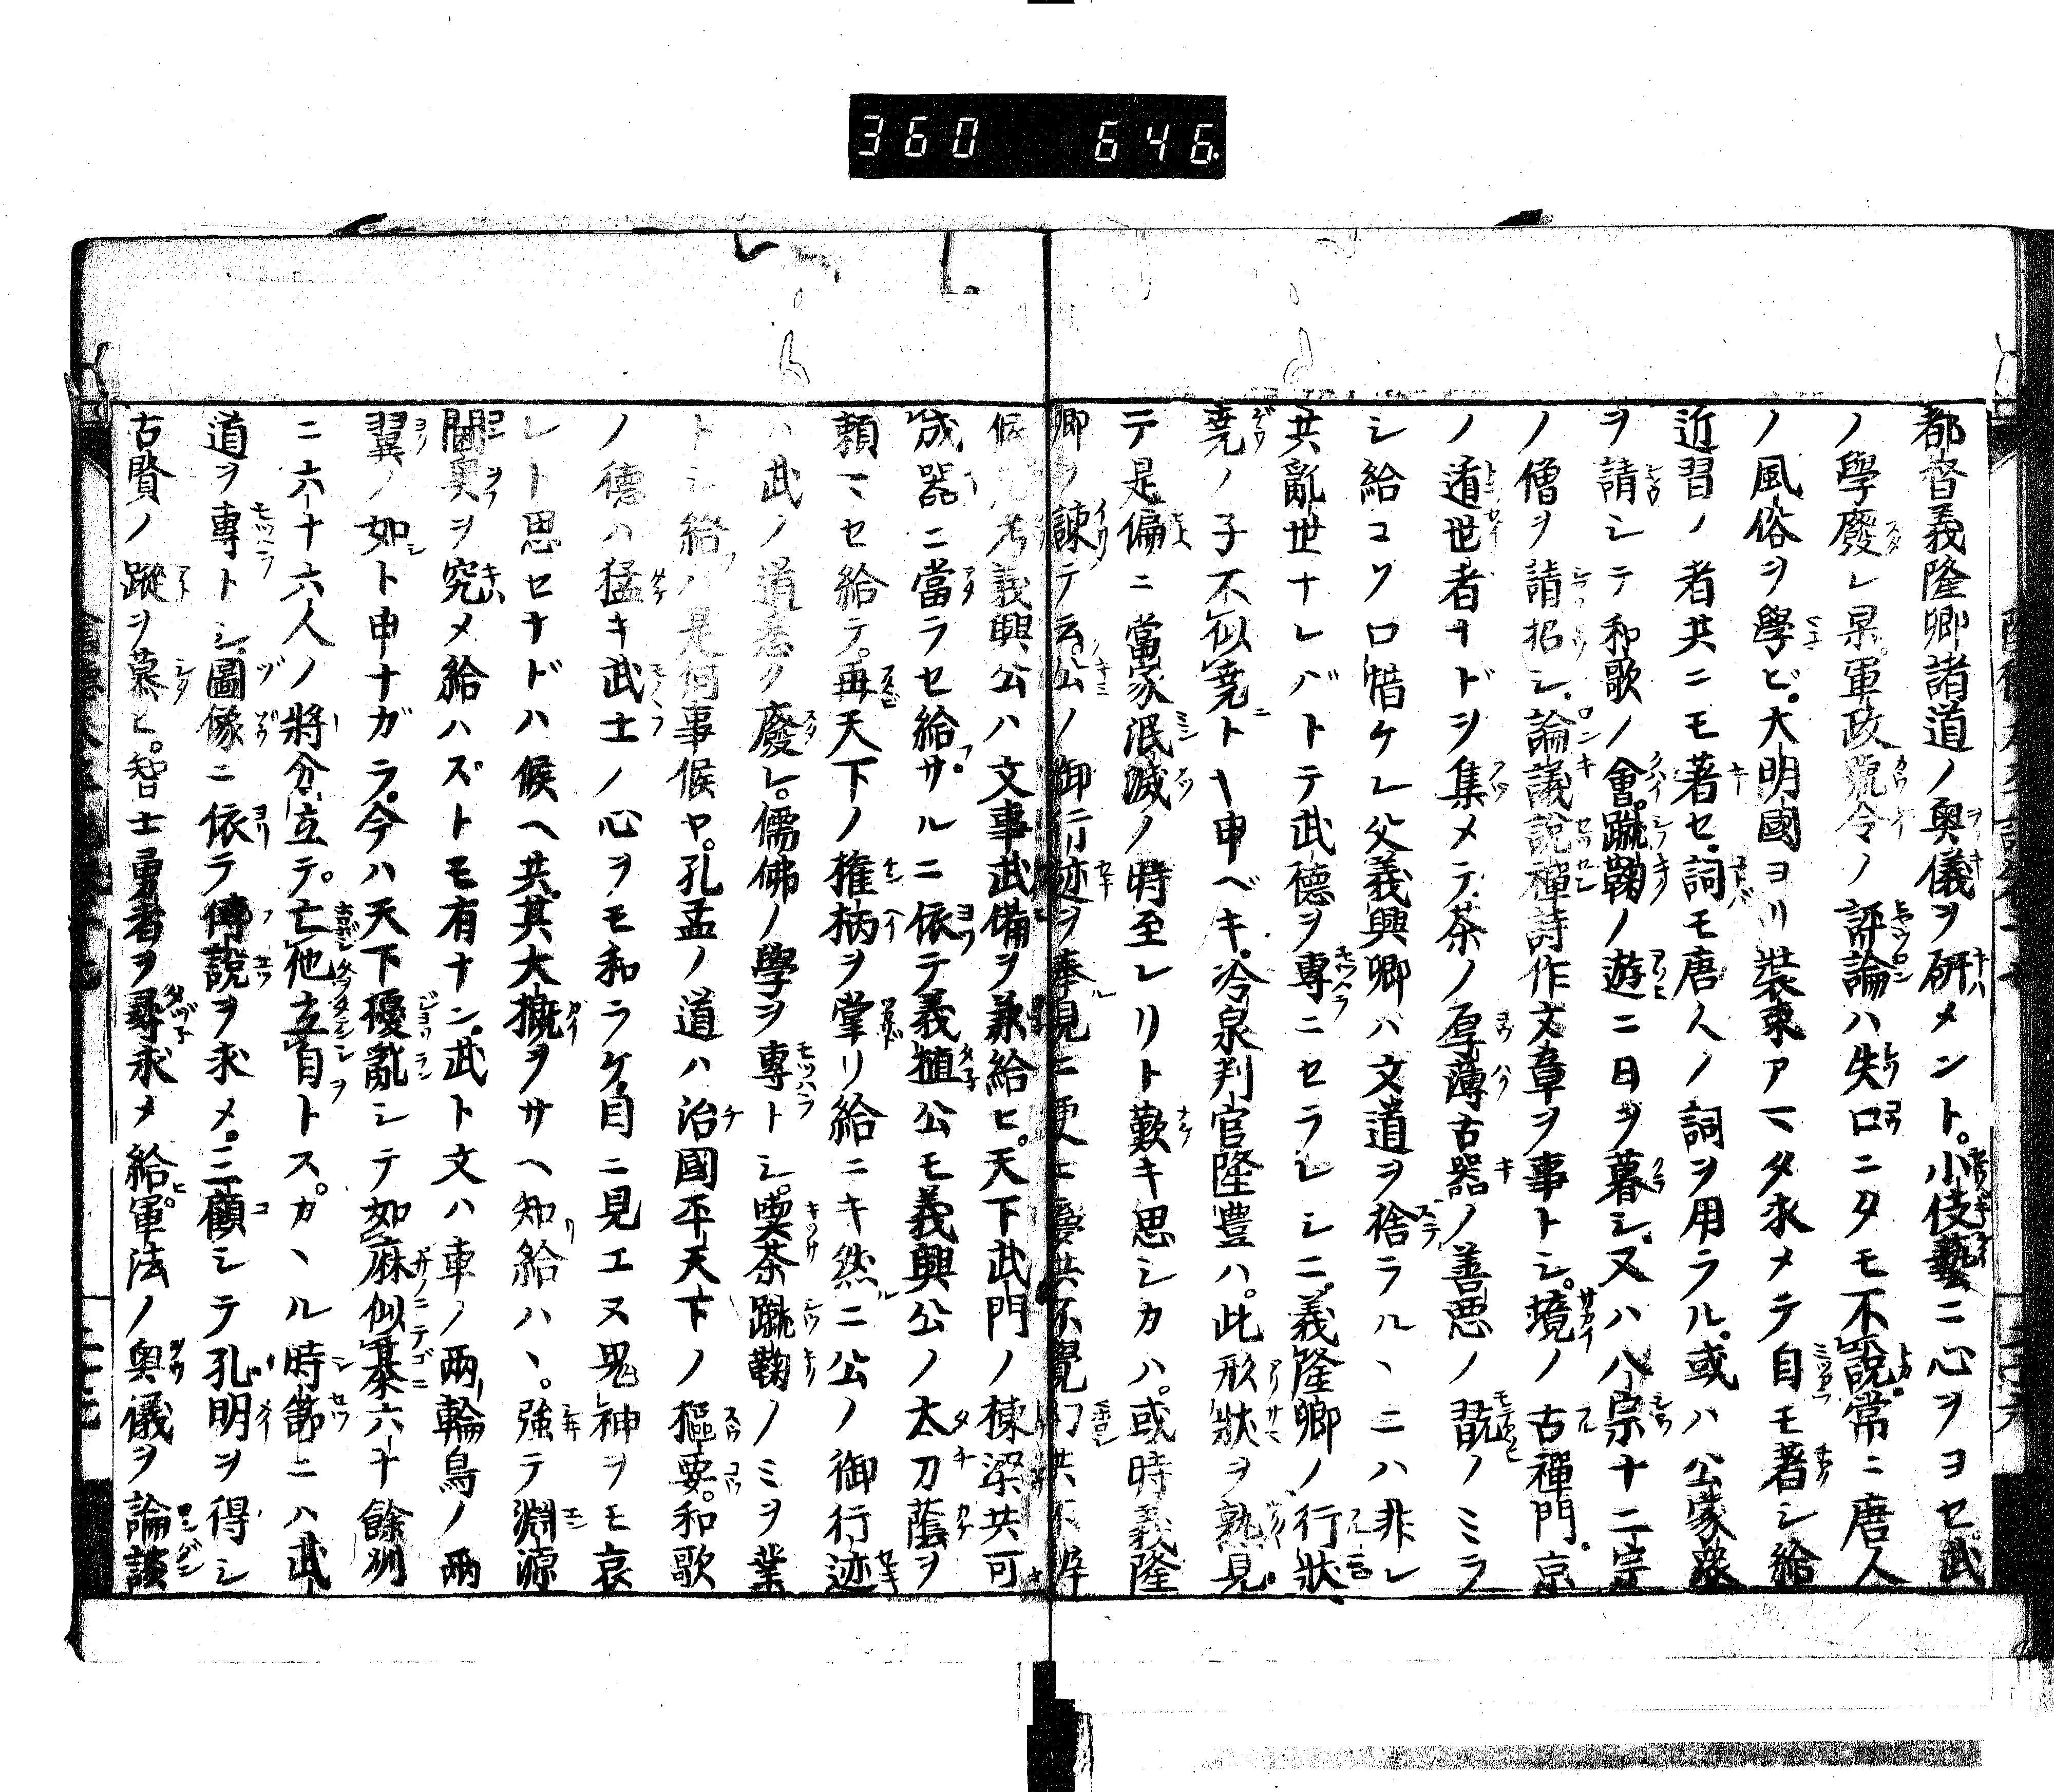 360 646
都督義隆卿諸道ノ奥儀ヲ研メント。小伎藝ニ心ヲヨセ。武
ノ學廢レ果。軍政號令ノ評論ハ失口ニタモ不說。常ニ唐人
ノ風俗ヲ學ビ。大明國ヨリ装束アマタ求メテ自モ著シ給
近習ノ者共ニモ著セ。詞モ唐人ノ詞ヲ用ラル。或ハ公家衆
ヲ請シテ和歌ノ會。蹴鞠ノ遊ニ日ヲ暮シ。又ハ八宗十二宗
ノ僧ヲ請招シ。論議說禪詩作文章ヲ事トシ。境ノ古禪門。京
ノ遁世者ナドヲ集メテ。茶ノ厚薄古器ノ善悪ノ翫ノミヲ
シ給コソ口惜ケレ父義興卿ハ文道ヲ捨ラルヽニハ非レ
共亂世ナレバトテ武德ヲ專ニセラレシニ。義隆卿ノ行狀
堯ノ子不似堯トヤ申ベキ。冷泉判官隆豊ハ。此形狀ヲ熟見。
テ是偏ニ當家泯滅ノ時至レリト歎キ思シカハ。或時義隆
卿ヲ諌テ云。公ノ御行迹ヲ奉見ニ更ニ
候先考義興公ハ文事武備ヲ兼給ヒ。天下武門ノ棟梁共可
成器ニ當ラセ給サルニ依テ義植公モ義興公ノ太刀蔭ヲ
頼マセ給テ。再天下ノ権柄ヲ掌リ給ニキ然ニ公ノ御行迹
ハ武ノ道悉ク廢レ。儒佛ノ學ヲ專トシ。喫茶蹴鞠ノミヲ業
トシ給ハ是何事候ヤ。孔孟ノ道ハ治國平天下ノ樞要。和歌
ノ德ハ猛キ武士ノ心ヲモ和ラケ。目ニ見エヌ鬼神ヲモ哀
レト思セナドハ候ヘ共。其大概ヲサヘ知給ハヽ。強テ淵源
閫奥ヲ究メ給ハズトモ有ナン。武ト文ハ車ノ兩輪鳥ノ兩
翼ノ如ト申ナガラ。今ハ天下擾亂シテ如麻似碁六十餘州
ニ六十六人ノ將分立テ。亡他立自トス。カヽル時節ニハ武
道ヲ專トシ。圖像ニ依テ傅說ヲ求メ。三顧シテ孔明ヲ得シ
古賢ノ蹤ヲ慕ヒ。智士勇者ヲ尋求メ給。軍法ノ奥儀ヲ論談